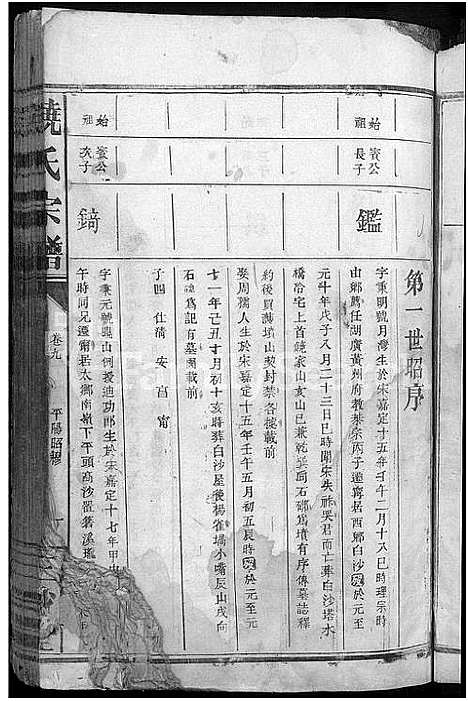 第一世昭序
始祖
賓公長子
鑑
字秉明號月灣生於宋嘉定十五年壬午二月十八巳時理宗時
由鄉薦任湖廣黃州府教授宗丙子遷甯居西鄉白沙歿於元至
元十年戊子八月二十三日巳時聞宋失祚哭君而亡葬白沙塔水
橋冶宅上首饒家山亥山巳兼乾巽同石鄉為墳有序傳墓誌釋
約後買蕩墳山契封禁各據載前
娶周孺人生於宋嘉定十五年壬午五月初五辰時歿於元至元
十一年己丑十月初十亥時葬白沙屋後楊雀塲小嘴辰山戌向
石磈為記有墓圖載前
子四 仕蒨 安 富 甯
始祖
賓公次子
錡
字秉元號興山例授迪功郎生於宋嘉定十七年甲申
午時同兄遷甯居太鄉南嶺下平頭高沙墨箬溪
饒氏宗譜
卷九
平陽昭穆